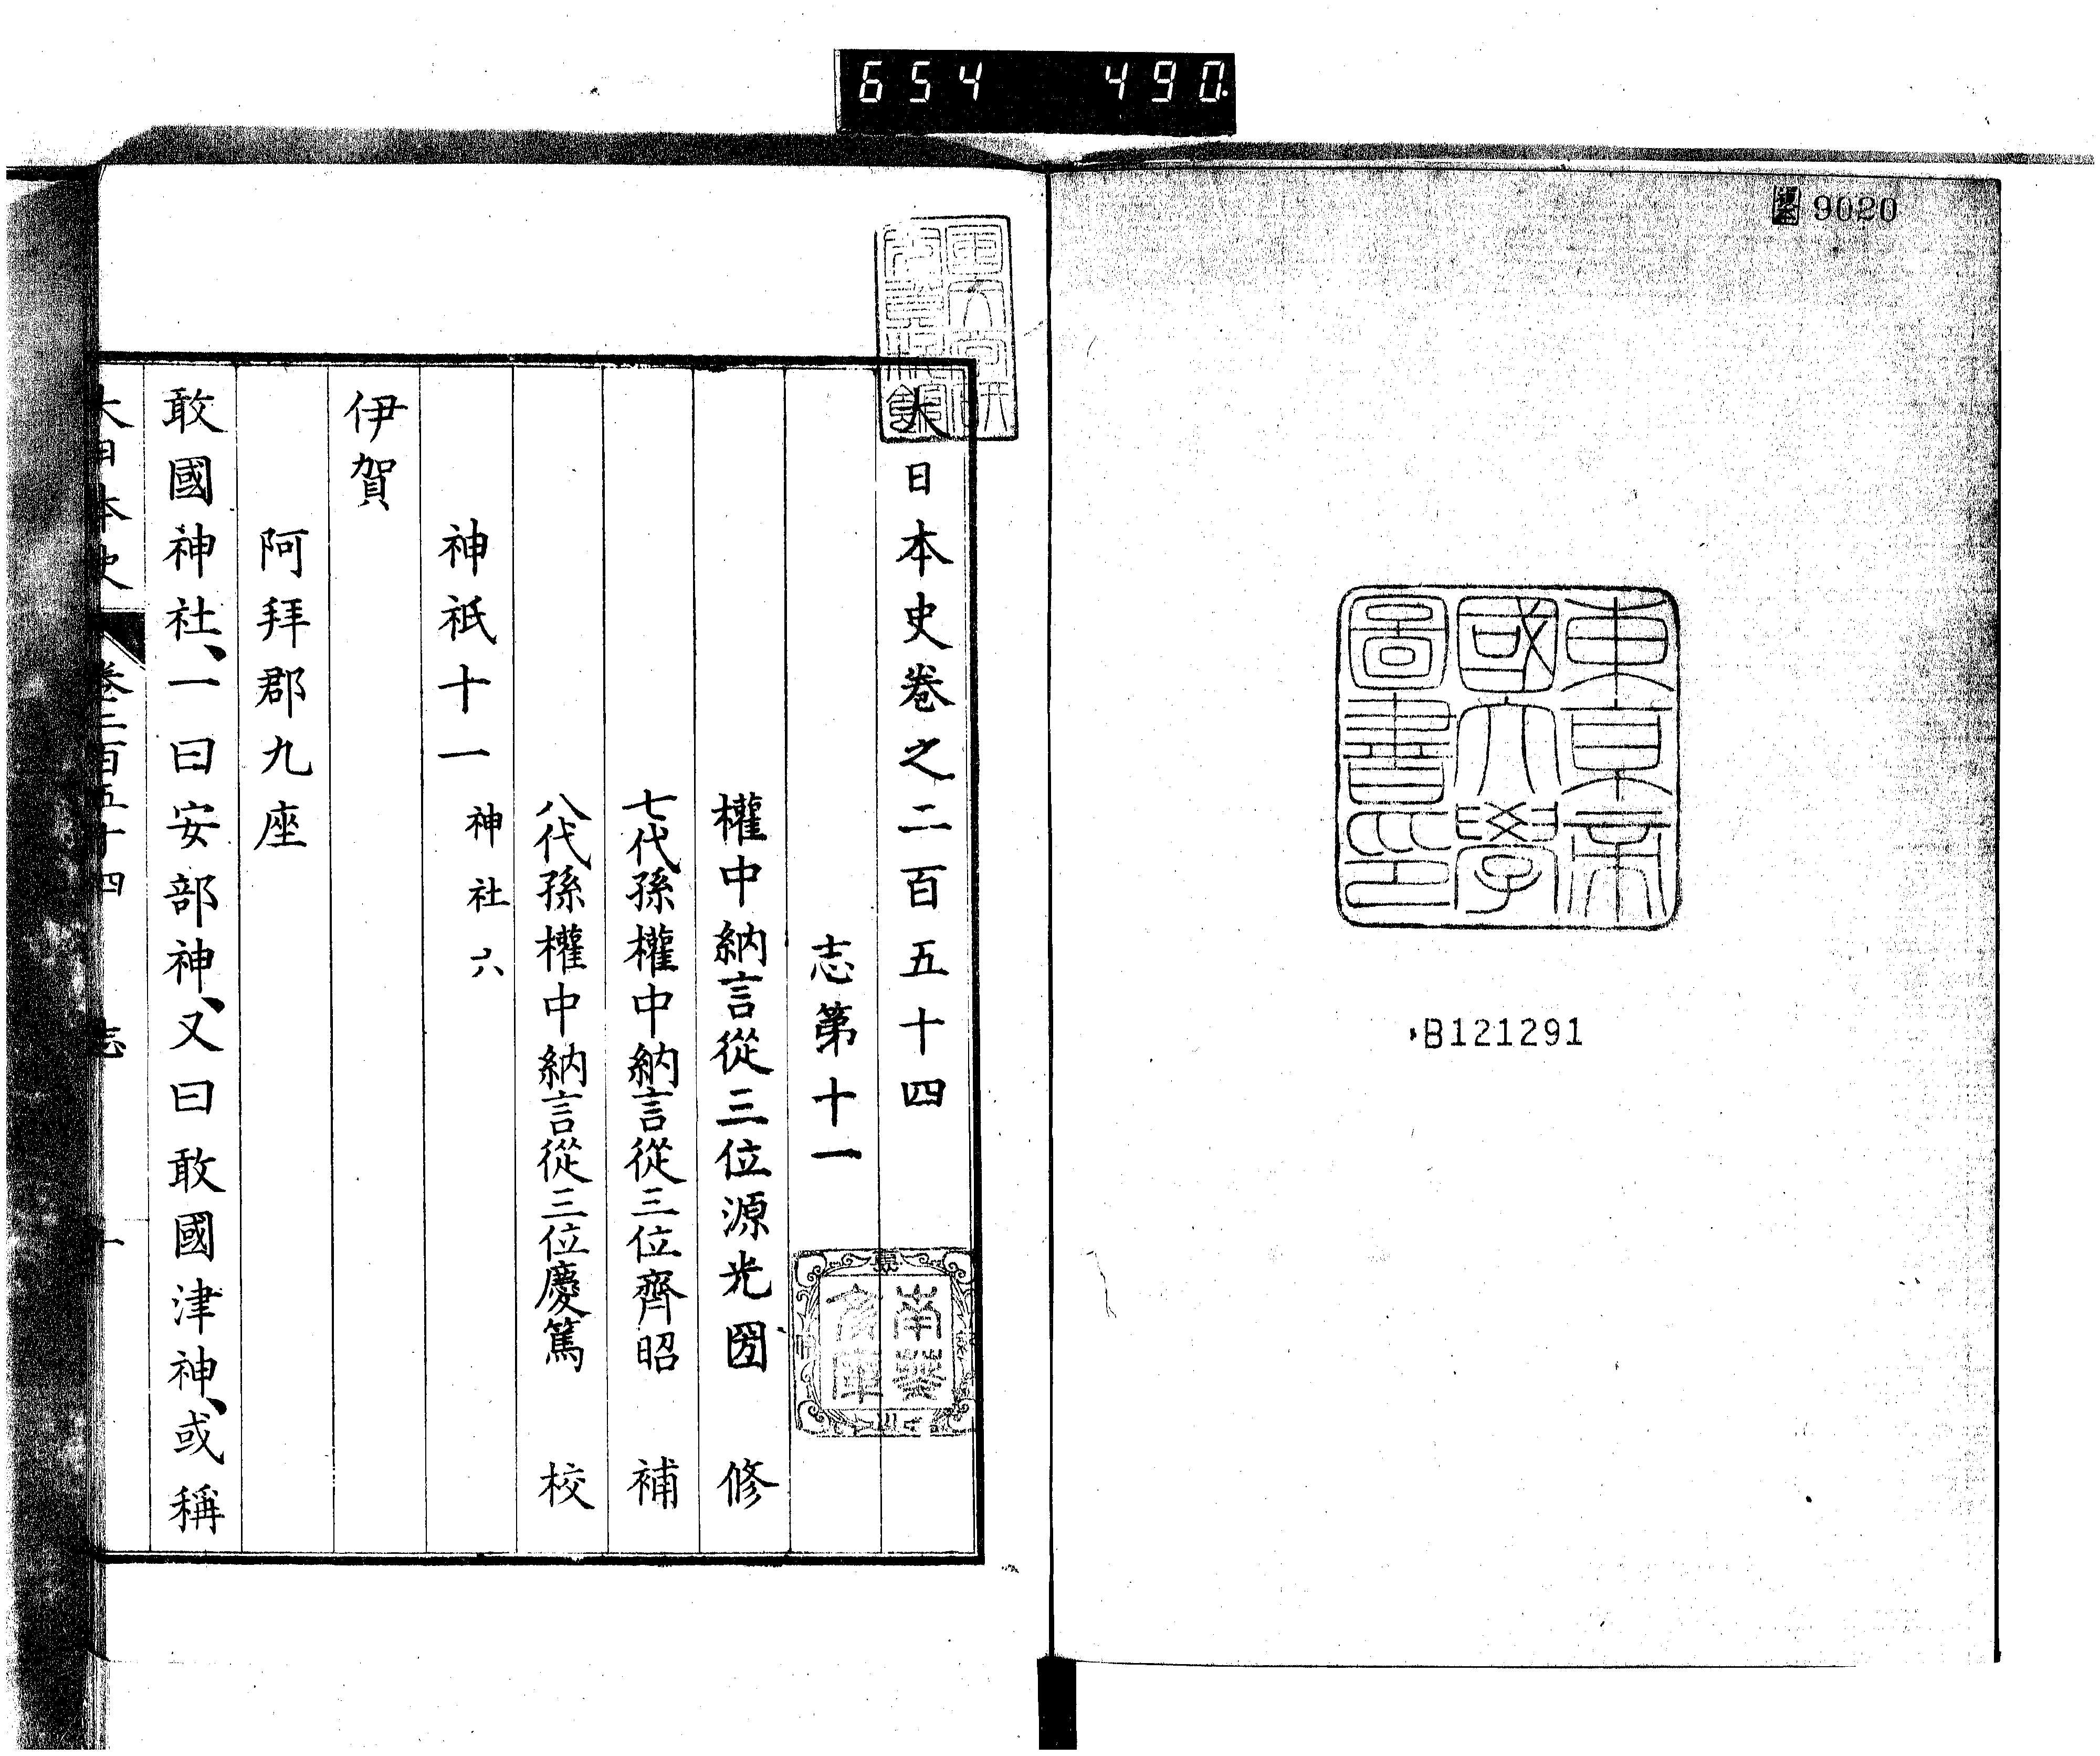 654 490.
9020
東京帝
國大學
圖書印
B121291
大日本史卷之二百五十四
志第十一
權中納言從三位源光圀 修
七代孫權中納言從三位齊昭 補
八代孫權中納言從三位慶篤 校
神祇十一 神社六
伊賀
阿拜郡九座
敢國神社、一曰安部神、又曰敢國津神、或稱
大日本史 卷二百五十四 志 一
南葵
文庫